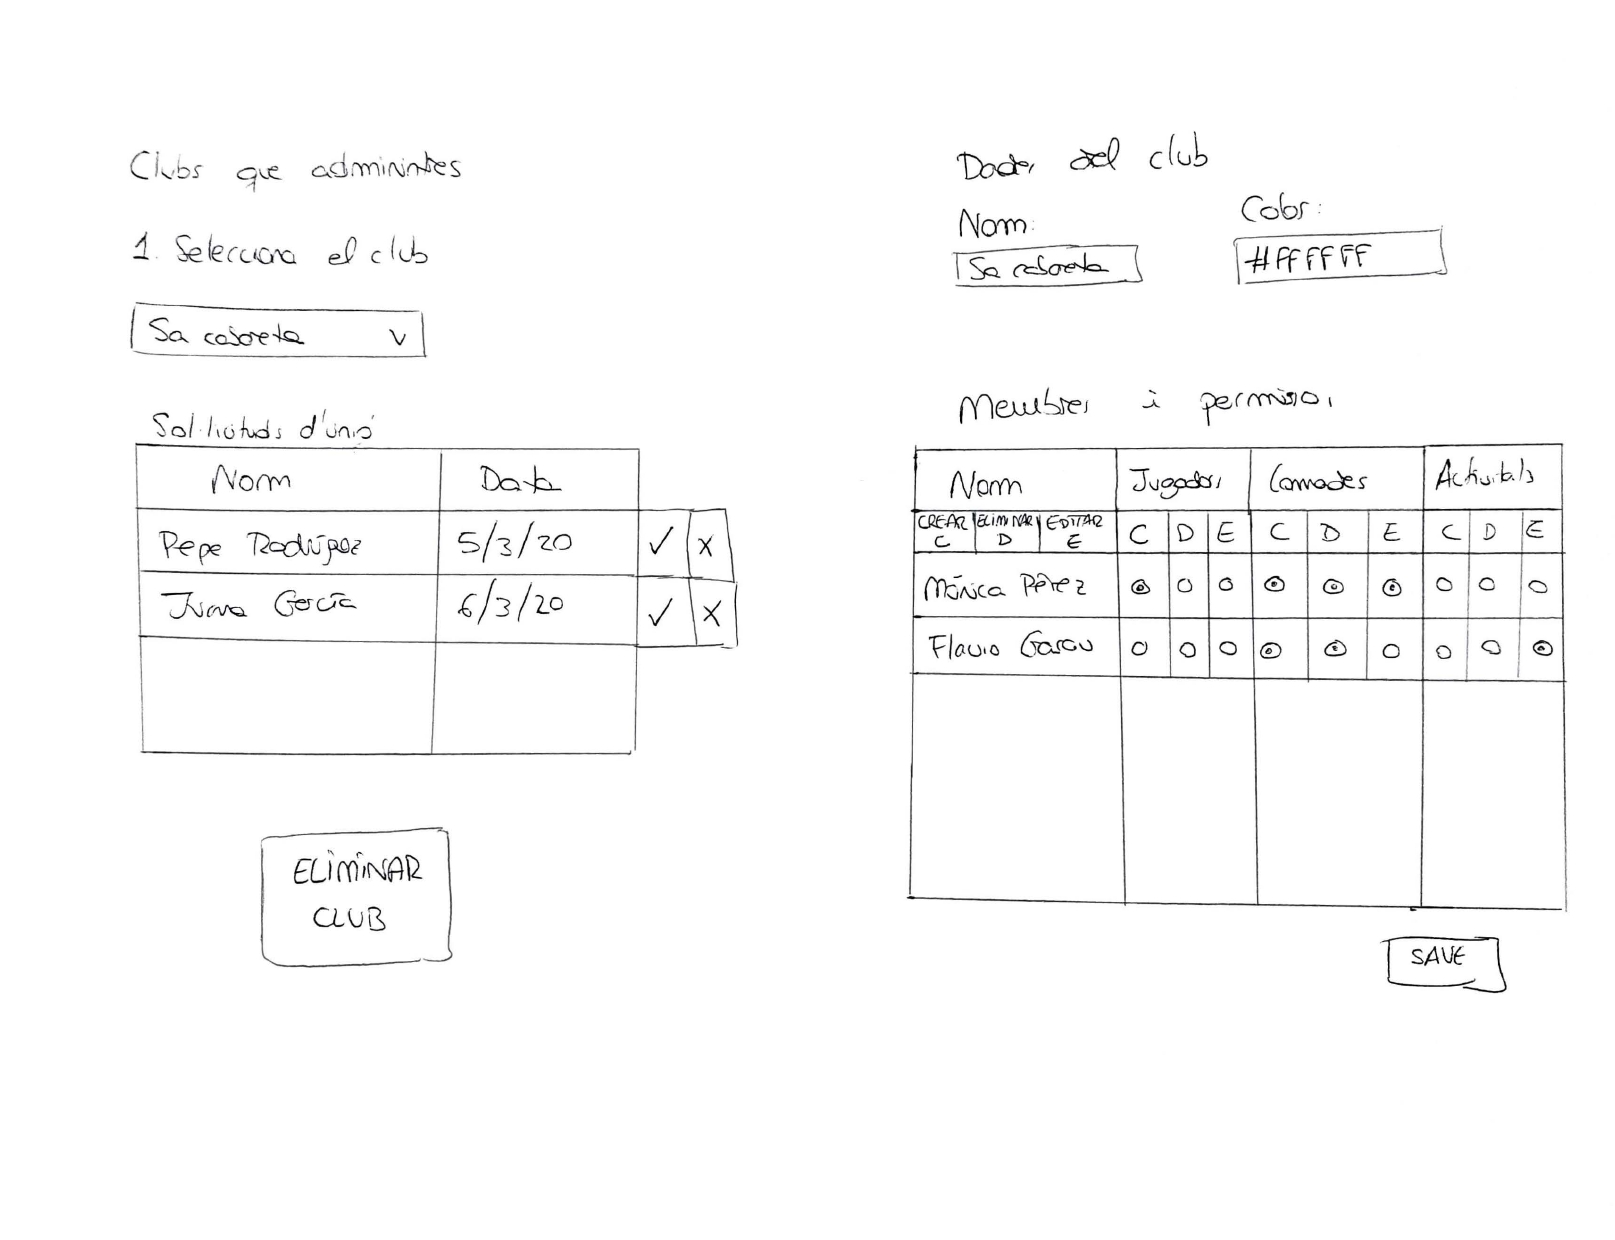 Clubs que administres
1. Selecciona el club
Sa cabreta v
Sol·licituds d'unió
Nom Data
Pepe Rodríguez 5/3/20 ✓ x
Juana García 6/3/20 ✓ x
ELIMINAR
CLUB
Dades del club
Nom: Color:
Sa cabreta #FFFFFF
Membres i permisos
Nom Jugadors Activitats
CREAR ELIMINAR EDITAR
C D E C D E C D E C D E
Mónica Pérez
Flavio Garau
SAVE